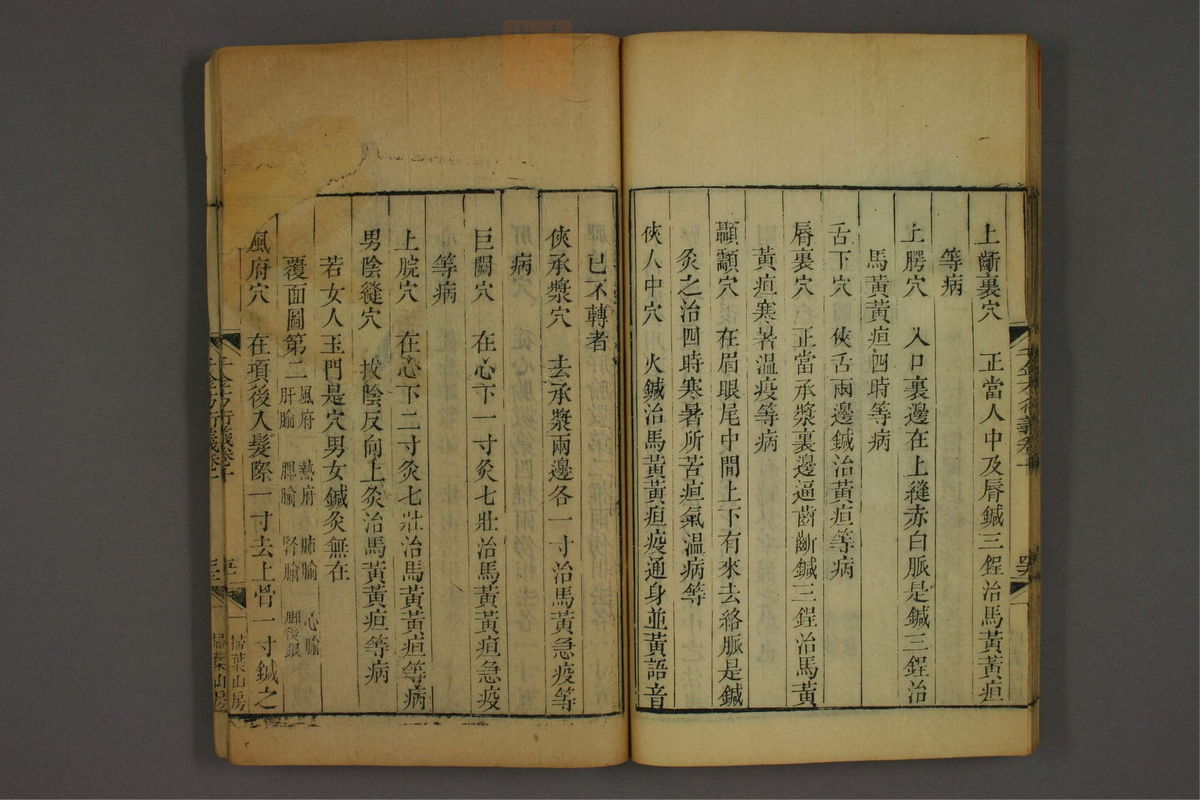 上齗裏穴　正當人中及脣鍼三鋥治馬黃黃疸
等病
上腭穴　入口裏邊在上縫赤白脈是鍼三鋥治
馬黃黃疸四時等病
舌下穴　俠舌兩邊鍼治黃疸等病
脣裏穴　正當承漿裏邊逼齒齗鍼三鋥治馬黃
黃疸寒暑溫疫等病
顳顬穴　在眉眼尾中間上下有來去絡脈是鍼
灸之治四時寒暑所苦疸氣溫病等
俠人中穴　火鍼治馬黃黃疸疫通身並黃語音
已不轉者
俠承漿穴　去承漿兩邊各一寸治馬黃急疫等
病
巨闕穴　在心下一寸灸七壯治馬黃黃疸急疫
等病
上脘穴　在心下二寸灸七壯治馬黃黃疸等病
男陰縫穴　拔陰反向上灸治馬黃黃疸等病
若女人玉門是穴男女鍼灸無在
覆面圖第二
風府　熱府　肺腧　心腧
肝腧　脾腧　腎腧　脚後跟
風府穴　在項後入髮際一寸去上骨一寸鍼之
千金方衍義卷十
掃葉山房